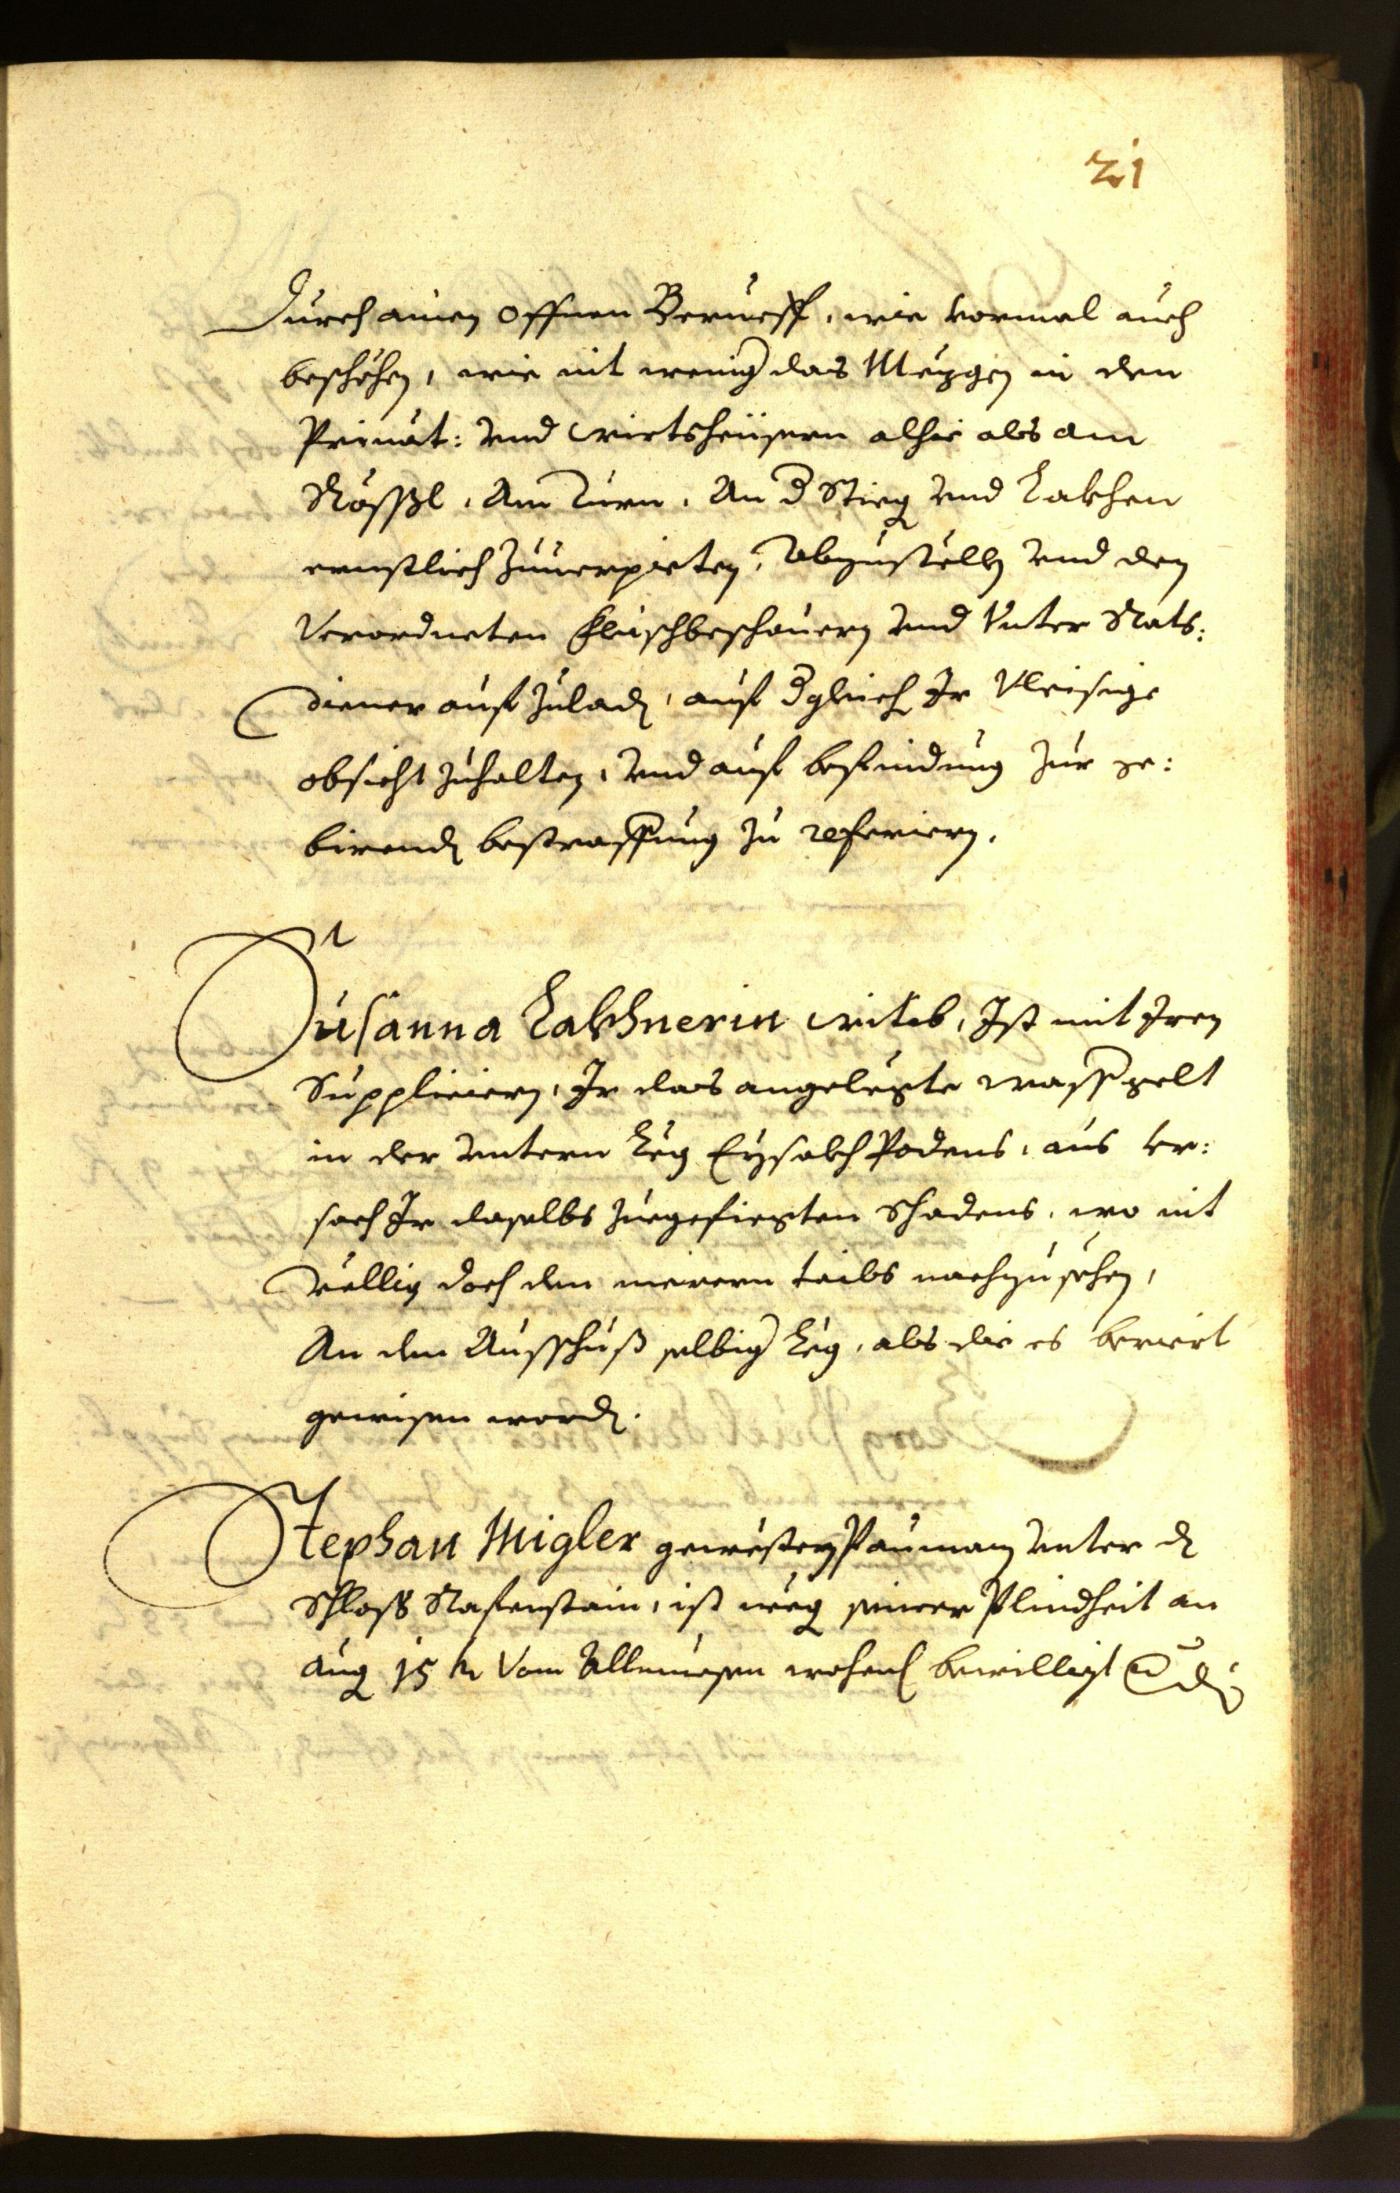 21
Durch ainen offnen Berueff, wie vormal auch
beschehen, wie nit weniger das Mezgen in den
Priuat: vnd Wirtsheüsern alhie als am
Rössl, Am Turn, An d Stieg vnd Lakhen
ernstlich zuuerpieten, abzustellen vnd den
Verordneten Fleischbeschauern vnd Vnter Rats:
diener auf zuladen, auf dgleich Ir vleisige
obsicht zuhalten, vnd auf befindung zur ge:
birenden bestraffung zu referiern.
Susanna Lakhnerin Witib, Ist mit Iren
Suppliciern, Ir das angelegte wasser gelt
in der vntern Leg Eysakh Podens, aus vr:
sach Ir daselbs zuegefiegten Schadens, wo nit
völlig doch den merern tails nachzusehen,
An den Ausschuß selbiger Leg, als die es beriert
gewisen worden.
Stephan Migler gewesten Paumann vnter dem
Schloss Rafenstain, ist weg seiner Plindheit an
Aug 15 kr Vom Allmuesen wochenl bewilligt